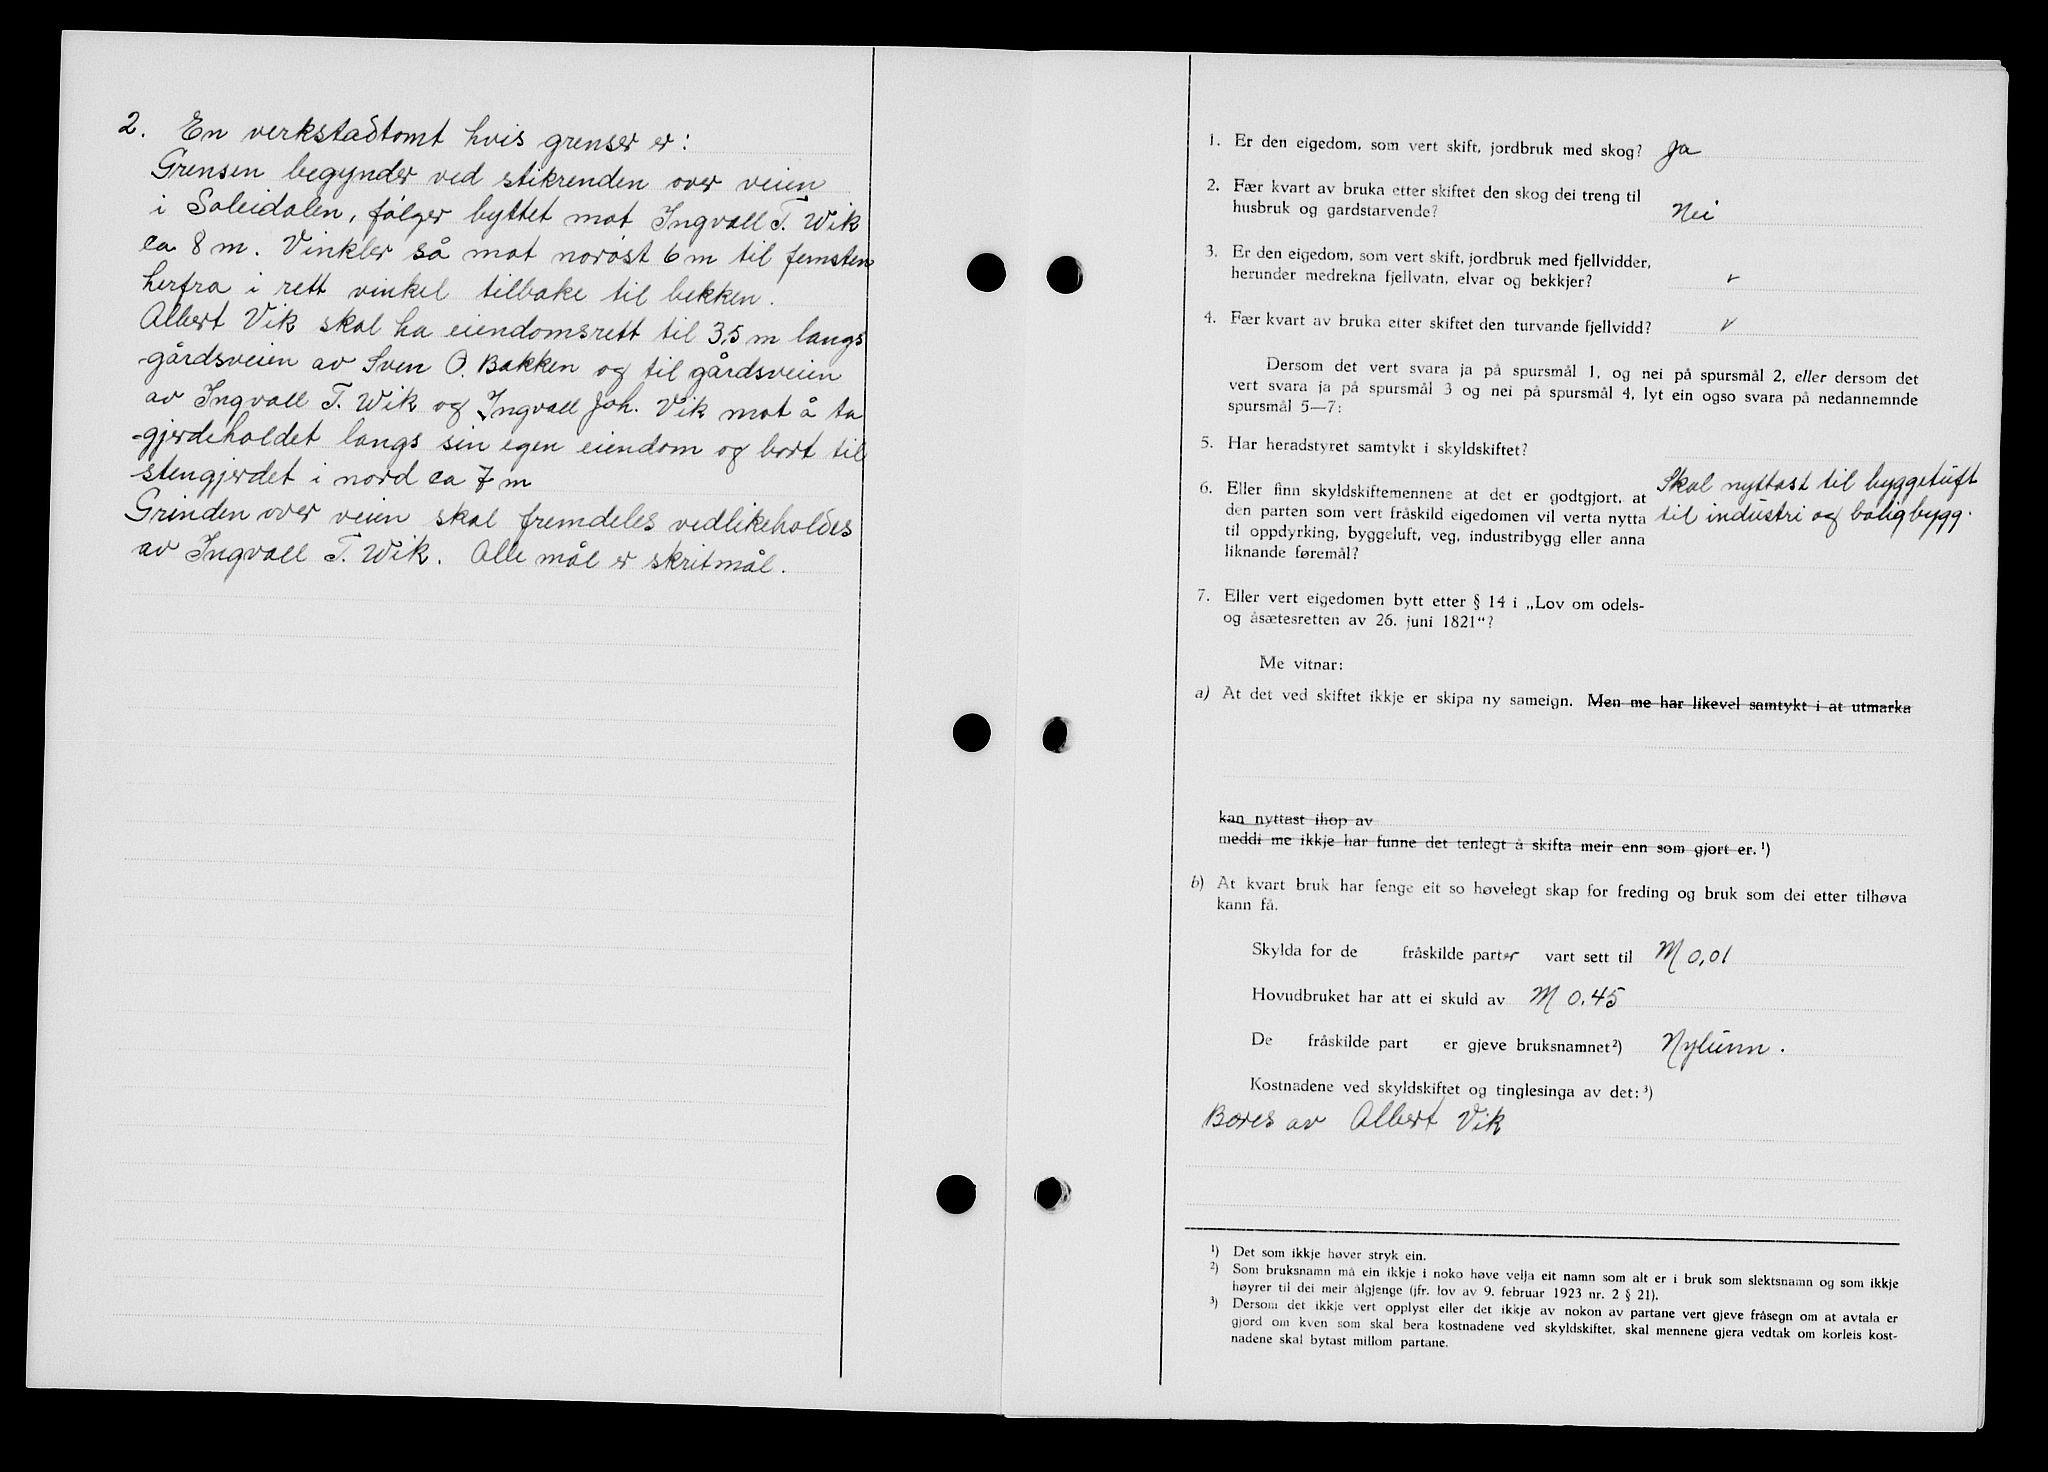 2. En verkstadtomt hvis grenser er:
Grensen begynder ved stikrenden over veien
i Soleidalen, følger byttet mot Ingvall T. Wik
ca 8 m. Vinkler så mot norøst 6 m til femsten
herfra i rett vinkel tilbake til bekken.
Albert Vik skal ha eiendomsrett til 3,5 m langs
gårdsveien av Sven O. Bakken og til gårdsveien
av Ingvall T. Wik og Ingvall Joh. Vik mot å ta
gjerdeholdet langs sin egen eiendom og bort til
stengjerdet i nord ca 7 m
Grinden over veien skal fremdeles vedlikeholdes
av Ingvall T. Wik. Alle mål er skritmål.
1. Er den eigedom, som vert skift, jordbruk med skog? Ja
2. Fær kvart av bruka etter skiftet den skog dei treng til
husbruk og gardstarvende? Nei
3. Er den eigedom, som vert skift, jordbruk med fjellvidder,
herunder medrekna fjellvatn, elvar og bekkjer?
4. Fær kvart av bruka etter skiftet den turvande fjellvidd?
Dersom det vert svara ja på spursmål 1, og nei på spursmål 2, eller dersom det
vert svara ja på spursmål 3 og nei på spursmål 4, lyt ein ogso svara på nedannemnde
spursmål 5—7:
5. Har heradstyret samtykt i skyldskiftet?
6. Eller finn skyldskiftemennene at det er godtgjort, at
den parten som vert fråskild eigedomen vil verta nytta
til oppdyrking, byggeluft, veg, industribygg eller anna
liknande føremål?
Skal nyttast til byggetuft
til industri og boligbygg.
7. Eller vert eigedomen bytt etter § 14 i „Lov om odels-
og åsætesretten av 26. juni 1821“?
Me vitnar:
a) At det ved skiftet ikkje er skipa ny sameign. Men me har likevel samtykt i at utmarka
kan nyttast ihop av
meddi me ikkje har funne det tenlegt å skifta meir enn som gjort er. ¹)
b) At kvart bruk har fenge eit so høvelegt skap for freding og bruk som dei etter tilhøva
kann få.
Skylda for de fråskilde parter vart sett til M 0,01
Hovudbruket har att ei skuld av M 0.45
De fråskilde part er gjeve bruksnamnet²) Nylunn.
Kostnadene ved skyldskiftet og tinglesinga av det: ³)
Bæres av Albert Vik
¹) Det som ikkje høver stryk ein.
²) Som bruksnamn må ein ikkje i noko høve velja eit namn som alt er i bruk som slektsnamn og som ikkje
høyrer til dei meir ålgjenge (jfr. lov av 9. februar 1923 nr. 2 § 21).
³) Dersom det ikkje vert opplyst eller det ikkje av nokon av partane vert gjeve fråsegn om at avtala er
gjord om kven som skal bera kostnadene ved skyldskiftet, skal mennene gjera vedtak om korleis kost-
nadene skal bytast millom partane.